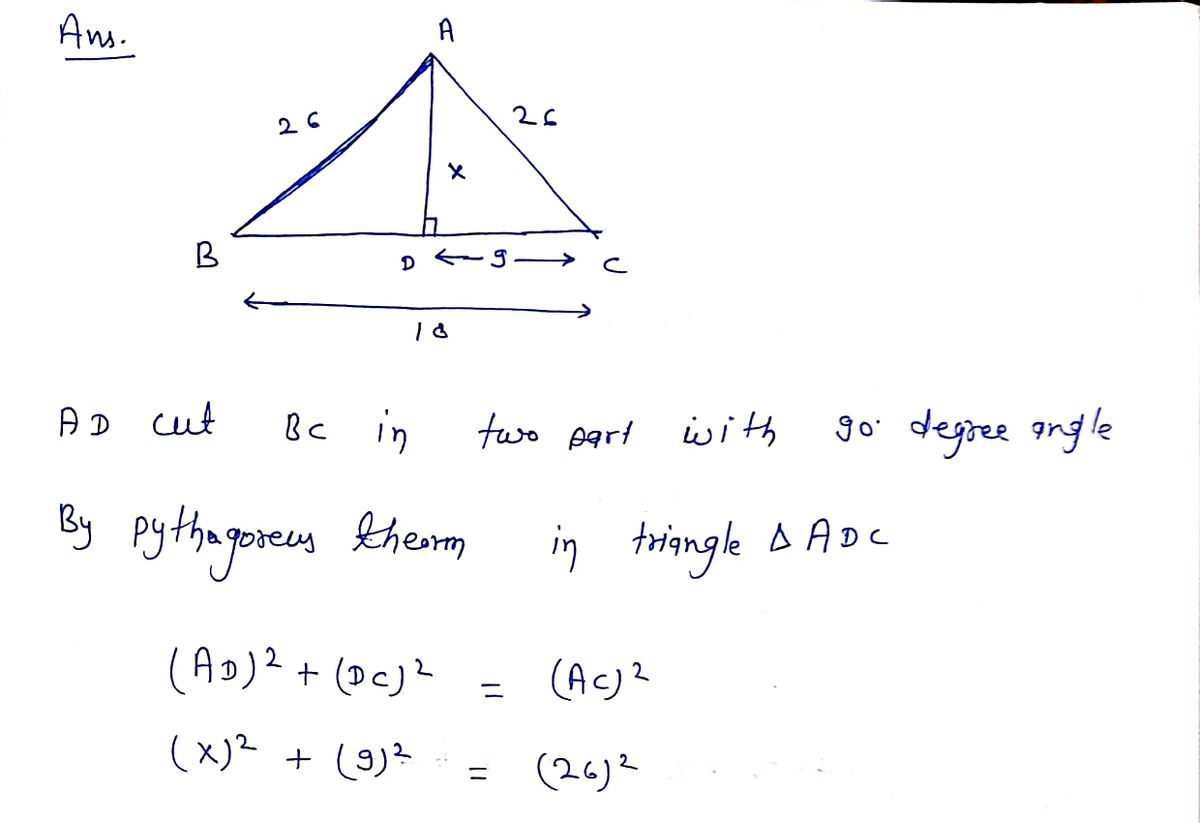 Ans.
A
26
26
x
B
D ← 9 → C
18
AD cut BC in two part with 90° degree angle
By pythagoreus theorm in triangle Δ ADC
(AD)² + (DC)² = (AC)²
(x)² + (9)² = (26)²